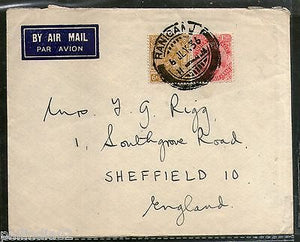 BY AIR MAIL
PAR AVION
Mrs. F. G. Rigg.
1, Southgrove Road,
SHEFFIELD 10
England.